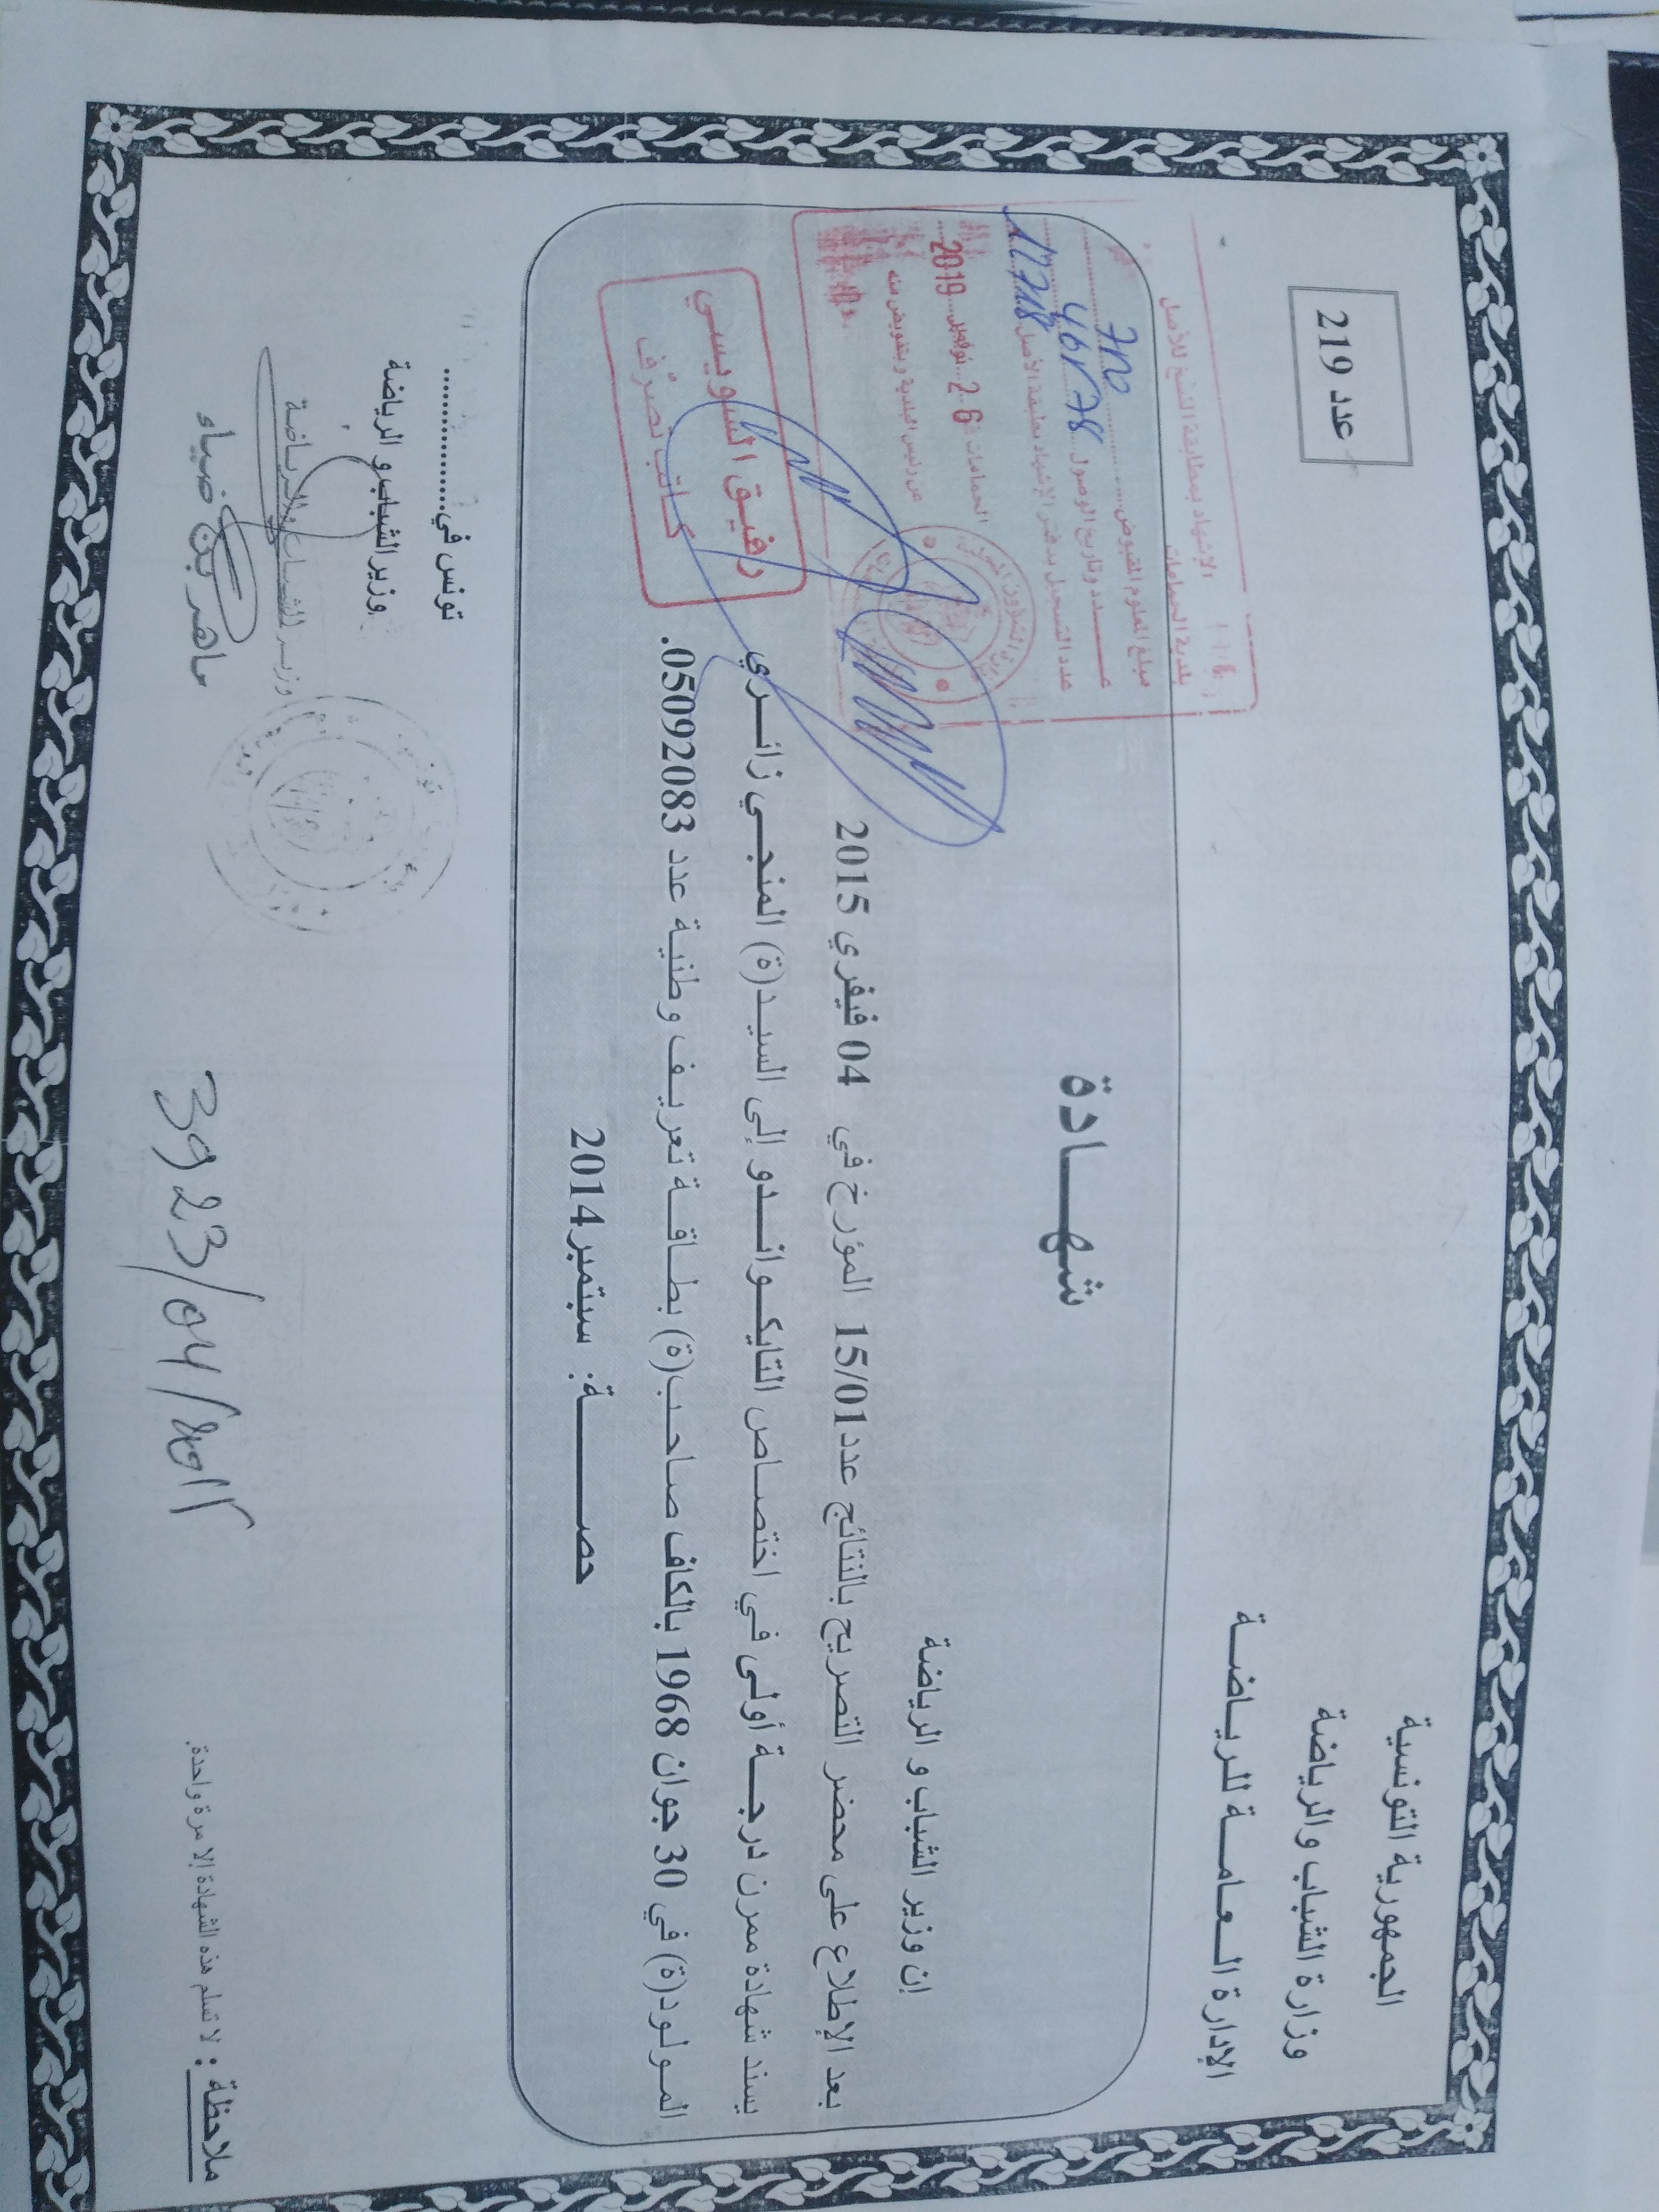 الجمهورية التونسية
وزارة الشباب والرياضة
الإدارة العامة للرياضة
عدد 219
الإشهاد بمطابقة النسخ للأصل
بلدية الحمامات
مبلغ المعلوم المقبوض
عدد وتاريخ الوصول
عدد التسجيل بدفتر الإشهاد بمطابقة الأصل 17718
الحمامات في 26 نوفمبر 2019
عن رئيس البلدية وبتفويض منه
رفيق السويسي
كاتب تصرف
شهادة
إن وزير الشباب و الرياضة
بعد الإطلاع على محضر التصريح بالنتائج عدد 15/01 المؤرخ في 04 فيفري 2015
يسند شهادة ممرن درجة أولى في اختصاص التايكواندو إلى السيد(ة) المنجي زائري
المولود(ة) في 30 جوان 1968 بالكاف صاحب(ة) بطاقة تعريف وطنية عدد 05092083.
حصة: سبتمبر 2014
تونس في
وزير الشباب و الرياضة
وزير الشباب والرياضة
ماهر بن ضياء
ملاحظة : لا تسلم هذه الشهادة إلا مرة واحدة.